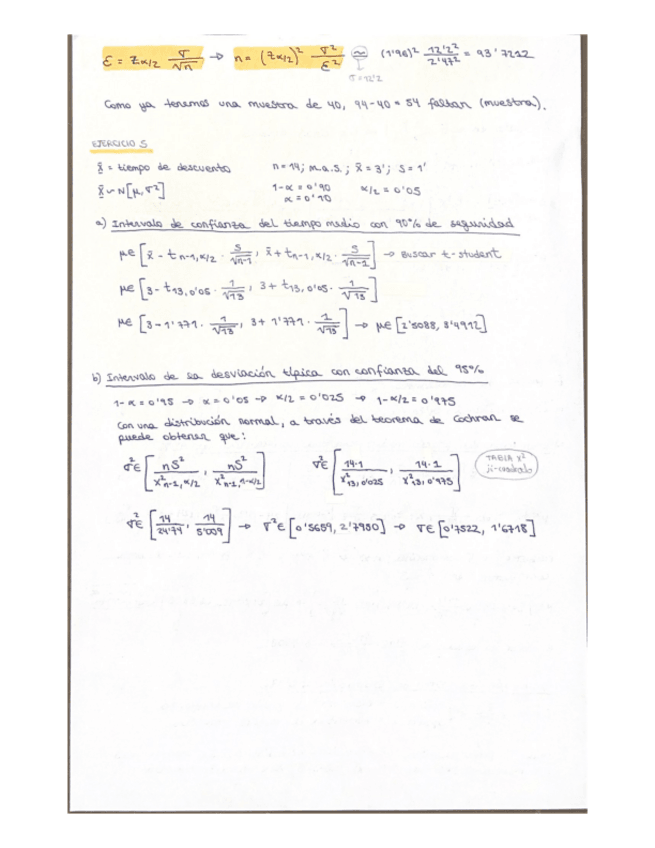 ε = Zα/2 σ/√n → n = (Zα/2)² σ²/ε² ≈ (1'96)² 12'2²/2'47² = 93'7212
σ=12'2
Como ya tenemos una muestra de 40, 94-40 = 54 faltan (muestra).
EJERCICIO 5
x = tiempo de descuento n = 14; m.a.s.; x̄ = 3'; S = 1'
x ~ N[μ, σ²] 1-α = 0'90 α/2 = 0'05
α = 0'10
a) Intervalo de confianza del tiempo medio con 90% de seguridad
μ∈ [x̄ - t n-1, α/2 · S/√n-1, x̄ + t n-1, α/2 · S/√n-1] → Buscar t-student
μ∈ [3 - t13, 0'05 · 1/√13, 3 + t13, 0'05 · 1/√13]
μ∈ [3 - 1'771 · 1/√13, 3 + 1'771 · 1/√13] → μ∈ [2'5088, 3'4912]
b) Intervalo de la desviación típica con confianza del 95%
1-α = 0'95 → α = 0'05 → α/2 = 0'025 → 1-α/2 = 0'975
Con una distribución normal, a través del teorema de Cochran se
puede obtener que:
σ²∈ [nS²/χ²n-1, α/2, nS²/χ²n-1, 1-α/2] σ²∈ [14·1/χ²13, 0'025, 14·1/χ²13, 0'975] TABLA χ²
ji-cuadrado
σ²∈ [14/24'74, 14/5'009] → σ²∈ [0'5659, 2'7950] → σ∈ [0'7522, 1'6718]